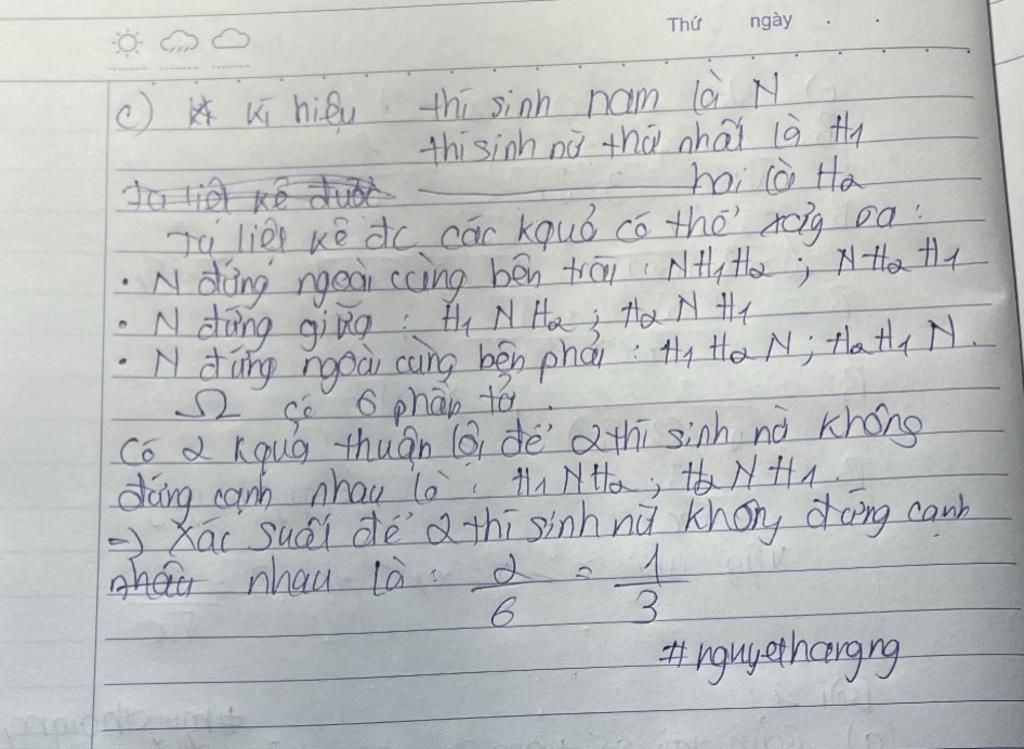 Thứ ngày
c) Kí hiệu: thí sinh nam là N
thí sinh nữ thứ nhất là H1
Ta liệt kê được hai là H2
Ta liệt kê đc các kquả có thể xảy ra:
• N đứng ngoài cùng bên trái: NH1H2; NH2H1
• N đứng giữa: H1NH2; H2NH1
• N đứng ngoài cùng bên phải: H1H2N; H2H1N.
Ω có 6 phần tử.
Có 2 kquả thuận lợi để 2 thí sinh nữ không
đứng cạnh nhau là: H1NH2; H2NH1.
=> Xác suất để 2 thí sinh nữ không đứng cạnh
nhau là: 2/6 = 1/3
#nguyethangng